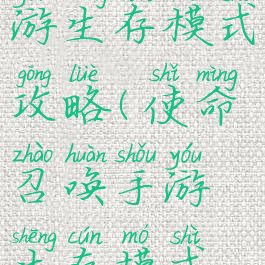 游生存模式
gōng lüè shǐ mìng
攻略(使命
zhào huàn shǒu yóu
召唤手游
shēng cún mó shì
生存模式